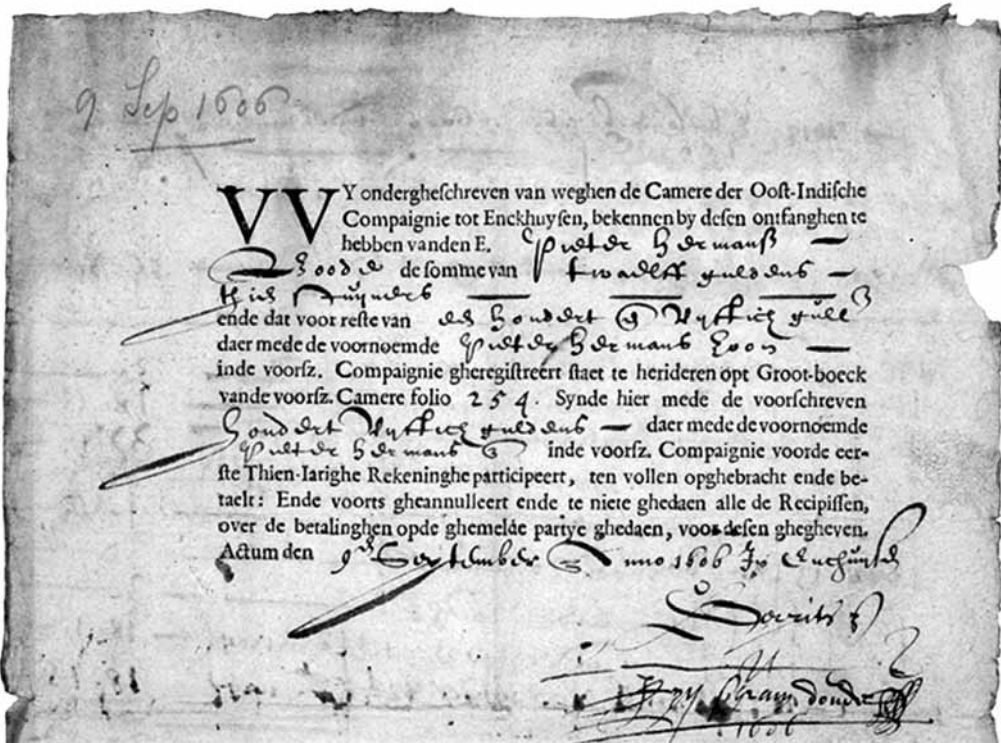 9 Sep 1606
VVY ondergheschreven van weghen de Camere der Oost-Indische
Compaignie tot Enckhuysen, bekennen by desen ontfanghen te
hebben vanden E. Pieter Hermansz
de somme van twaelff guldens

ende dat voor reste van een hondert vyftich gull
daer mede de voornoemde Pieter Hermans zoon
inde voorsz. Compaignie gheregistreert staet te herideren opt Groot-boeck
vande voorsz. Camere folio 254. Synde hier mede de voorschreven
hondert vyftich guldens daer mede de voornoemde
Pieter Hermans inde voorsz. Compaignie voorde eer-
ste Thien-Iarighe Rekeninghe participeert, ten vollen opghebracht ende be-
taelt: Ende voorts gheannulleert ende te niete ghedaen alle de Recipissen,
over de betalinghen opde ghemelde partye ghedaen, voor desen ghegheven.
Actum den 9en September Anno 1606 In
Gerritsz
1606